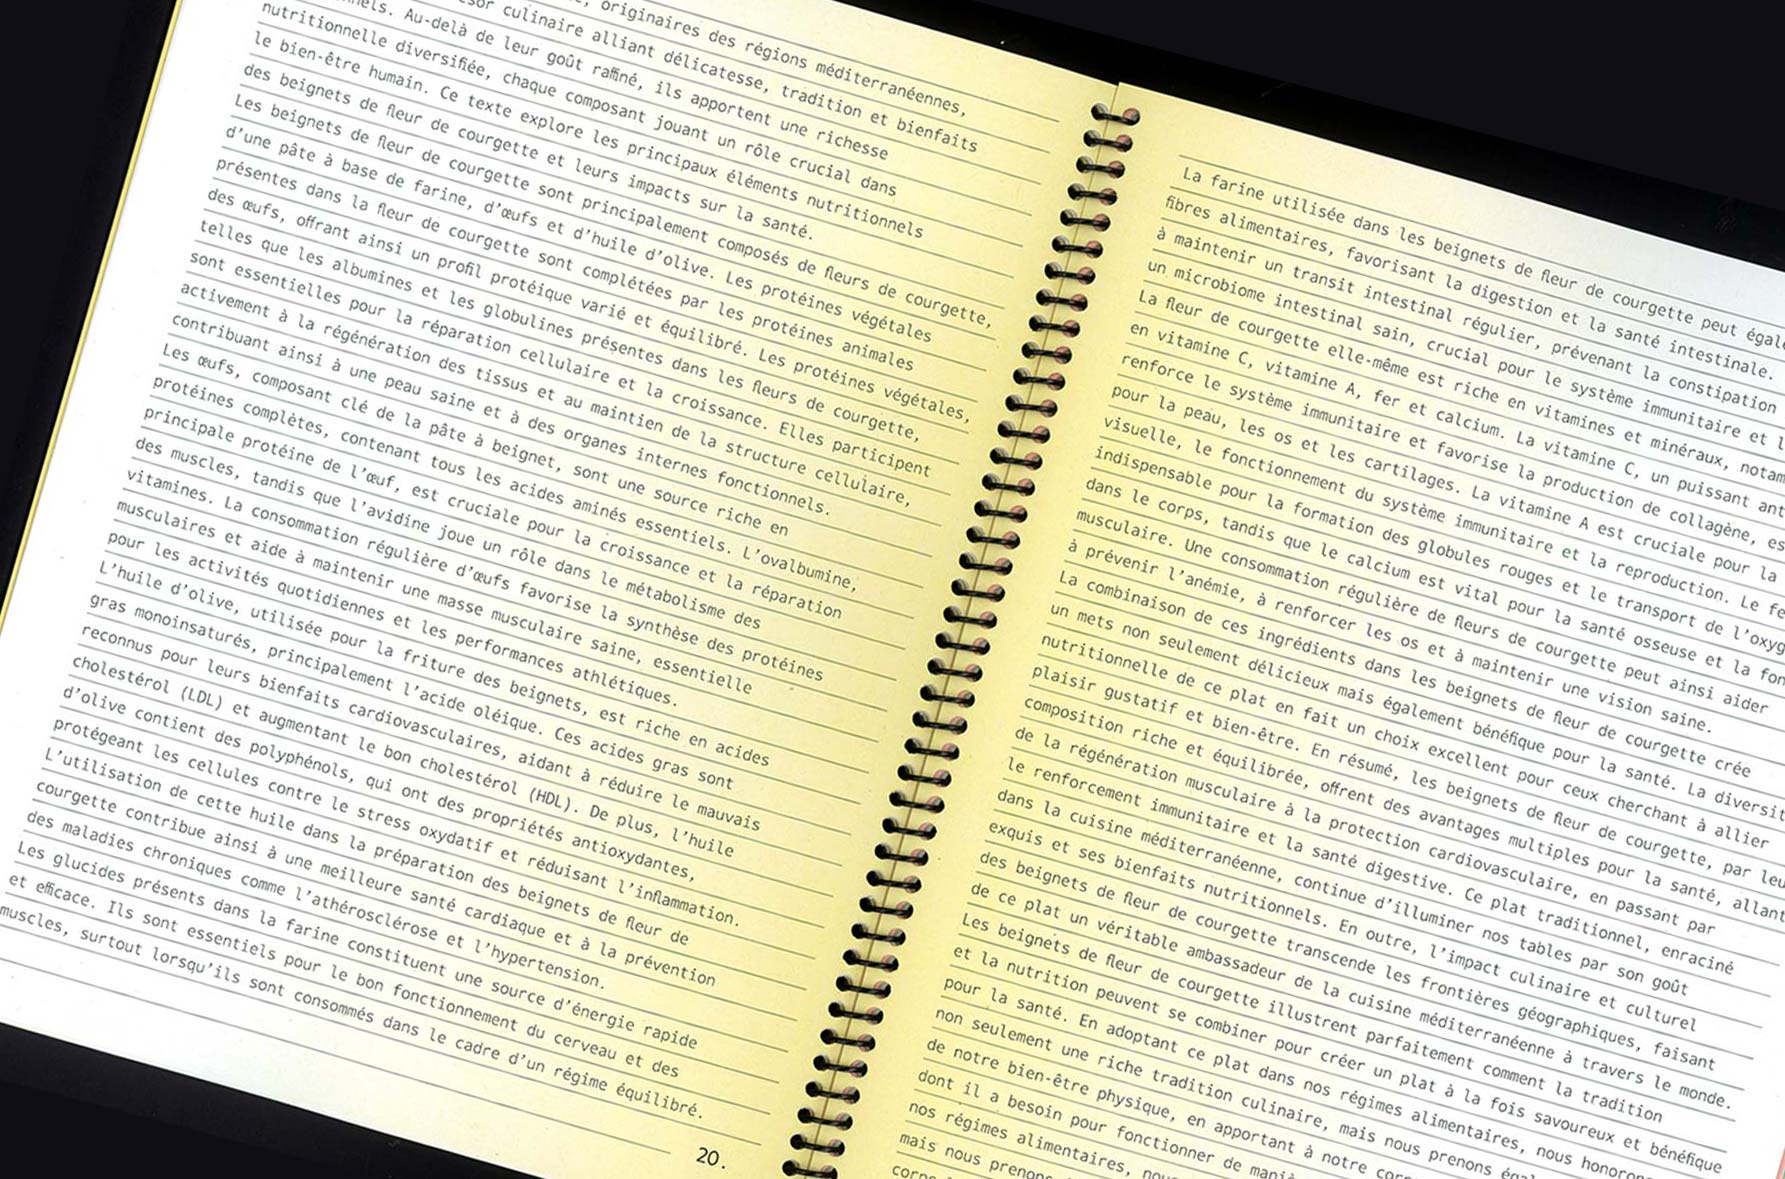 originaires des régions méditerranéennes,
culinaire alliant délicatesse, tradition et bienfaits
Au-delà de leur goût raffiné, ils apportent une richesse
nutritionnelle diversifiée, chaque composant jouant un rôle crucial dans
le bien-être humain. Ce texte explore les principaux éléments nutritionnels
des beignets de fleur de courgette et leurs impacts sur la santé.
Les beignets de fleur de courgette sont principalement composés de fleurs de courgette,
d'une pâte à base de farine, d'œufs et d'huile d'olive. Les protéines végétales
présentes dans la fleur de courgette sont complétées par les protéines animales
des œufs, offrant ainsi un profil protéique varié et équilibré. Les protéines végétales,
telles que les albumines et les globulines présentes dans les fleurs de courgette,
sont essentielles pour la réparation cellulaire et la croissance. Elles participent
activement à la régénération des tissus et au maintien de la structure cellulaire,
contribuant ainsi à une peau saine et à des organes internes fonctionnels.
Les œufs, composant clé de la pâte à beignet, sont une source riche en
protéines complètes, contenant tous les acides aminés essentiels. L'ovalbumine,
principale protéine de l'œuf, est cruciale pour la croissance et la réparation
des muscles, tandis que l'avidine joue un rôle dans le métabolisme des
vitamines. La consommation régulière d'œufs favorise la synthèse des protéines
musculaires et aide à maintenir une masse musculaire saine, essentielle
pour les activités quotidiennes et les performances athlétiques.
L'huile d'olive, utilisée pour la friture des beignets, est riche en acides
gras monoinsaturés, principalement l'acide oléique. Ces acides gras sont
reconnus pour leurs bienfaits cardiovasculaires, aidant à réduire le mauvais
cholestérol (LDL) et augmentant le bon cholestérol (HDL). De plus, l'huile
d'olive contient des polyphénols, qui ont des propriétés antioxydantes,
protégeant les cellules contre le stress oxydatif et réduisant l'inflammation.
L'utilisation de cette huile dans la préparation des beignets de fleur de
courgette contribue ainsi à une meilleure santé cardiaque et à la prévention
des maladies chroniques comme l'athérosclérose et l'hypertension.
Les glucides présents dans la farine constituent une source d'énergie rapide
et efficace. Ils sont essentiels pour le bon fonctionnement du cerveau et des
muscles, surtout lorsqu'ils sont consommés dans le cadre d'un régime équilibré.
20.
La farine utilisée dans les beignets de fleur de courgette peut
fibres alimentaires, favorisant la digestion et la santé intestinale.
à maintenir un transit intestinal régulier, prévenant la constipation
un microbiome intestinal sain, crucial pour le système immunitaire et
La fleur de courgette elle-même est riche en vitamines et minéraux,
en vitamine C, vitamine A, fer et calcium. La vitamine C, un puissant
renforce le système immunitaire et favorise la production de collagène,
pour la peau, les os et les cartilages. La vitamine A est cruciale pour la
visuelle, le fonctionnement du système immunitaire et la reproduction. Le
indispensable pour la formation des globules rouges et le transport de
dans le corps, tandis que le calcium est vital pour la santé osseuse et la
musculaire. Une consommation régulière de fleurs de courgette peut ainsi aider
à prévenir l'anémie, à renforcer les os et à maintenir une vision saine.
La combinaison de ces ingrédients dans les beignets de fleur de courgette crée
un mets non seulement délicieux mais également bénéfique pour la santé. La
nutritionnelle de ce plat en fait un choix excellent pour ceux cherchant à allier
plaisir gustatif et bien-être. En résumé, les beignets de fleur de courgette, par
composition riche et équilibrée, offrent des avantages multiples pour la santé, allant
de la régénération musculaire à la protection cardiovasculaire, en passant par
le renforcement immunitaire et la santé digestive. Ce plat traditionnel, enraciné
dans la cuisine méditerranéenne, continue d'illuminer nos tables par son goût
exquis et ses bienfaits nutritionnels. En outre, l'impact culinaire et culturel
des beignets de fleur de courgette transcende les frontières géographiques, faisant
de ce plat un véritable ambassadeur de la cuisine méditerranéenne à travers le monde.
Les beignets de fleur de courgette illustrent parfaitement comment la tradition
et la nutrition peuvent se combiner pour créer un plat à la fois savoureux et bénéfique
pour la santé. En adoptant ce plat dans nos régimes alimentaires, nous
non seulement une riche tradition culinaire, mais nous prenons
de notre bien-être physique, en apportant à notre
dont il a besoin pour fonctionner de
nos régimes alimentaires,
mais nous prenons